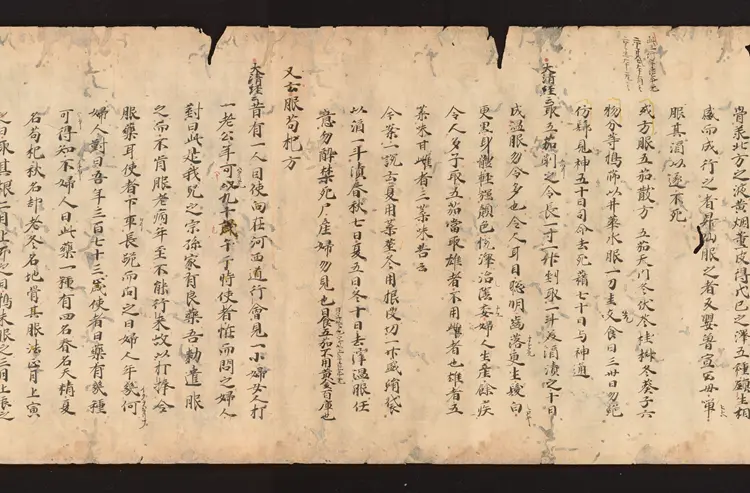 骨菜北方之液黄烟盡皮得戊己之澤五種願生相
感而成行之者昇仙服之者反嬰魯宣公母單
服其酒以遂不死
或方服五茄散方 五茄 天門冬 伏冬 桂 椒冬葵子六
物分等搗篩以井華水服一刀圭先食日三卅日勿絶
仿歸見神五十日司命去死籍七十日与神通
太清経云取五茄剉之令長一寸一升到取一斗美酒漬之十日
成温服勿令多也令人耳目聡明歯落更生髪白
更黒身體軽強顔色悦澤治陰痿婦人生産餘疾
令人多子取五茄當取雄者不用雌者也雄者五
葉味甘雌者三葉味苦云
今案一説云夏用葉莖冬用根皮切一升盛絹袋
以酒一斗漬春秋七日夏五日冬十日去滓温服任
意勿酔禁死尸産婦勿見也
又云服苟杞方
太清経云昔有一人因使向在河西道行會見一小婦女人打
一老公年可八九十歳許于時使者恠而問之婦人
對曰此是我児之宗孫家有良薬吾勅遣服
之而不肯服老病年至不能行来故以打棒令
服薬耳使者下車長跪而問之曰婦人年幾何
婦人對曰吾年三百七十三歳使者曰薬有幾種
可得知不婦人曰此薬一種有四名春名天精夏
名苟杞秋名却老冬名地骨其服法正月上寅
之日取其根二月上卯之日搗末服之三月上辰之